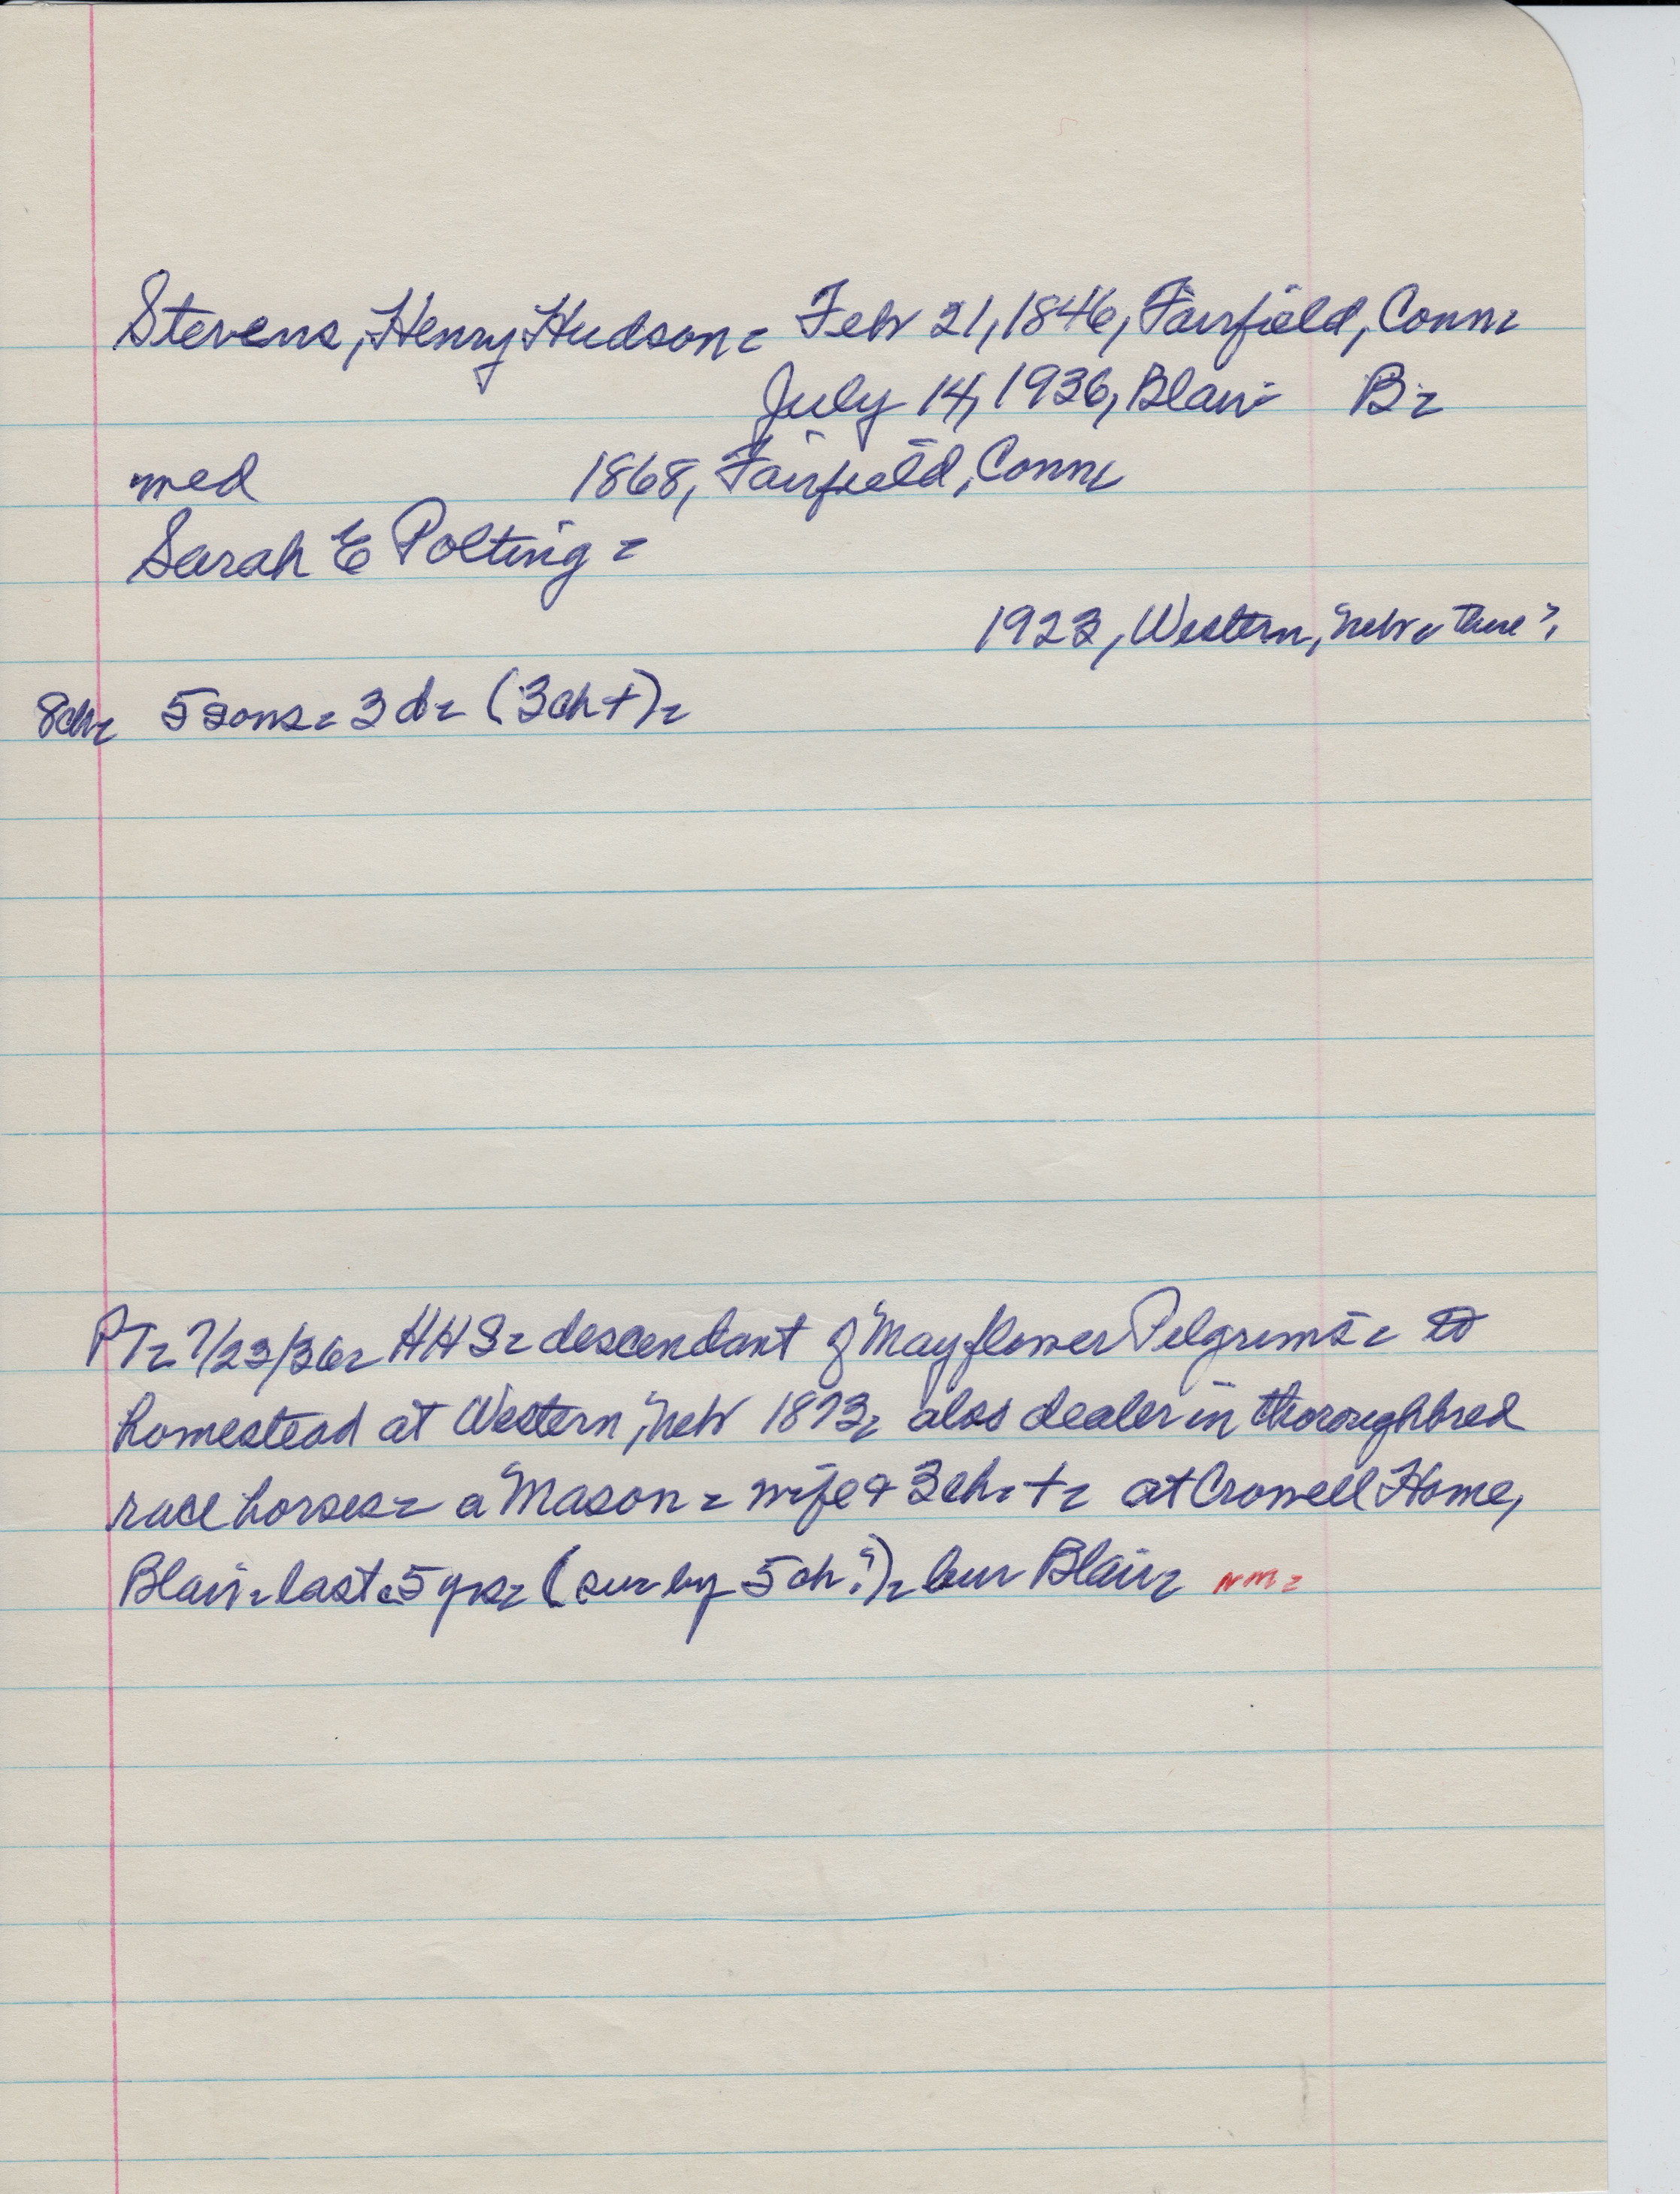 Stevens, Henry Hudson = Feb 21, 1846, Fairfield, Conn =
July 14, 1936, Blair B =
med 1868, Fairfield, Conn
Sarah E Polting =
1923, Western, Neb
8ch = 5 sons = 3 d = (3 ch +) =
PT = 7/23/36 = HHS = descendant of Mayflower Pilgrims = to
homestead at Western, Neb 1873 = also dealer in thoroughbred
race horses = a Mason = wife & 3 ch = + = at Crowell Home,
Blair = last 5 yrs = (sur by 5 ch?) = bur Blair = nm =